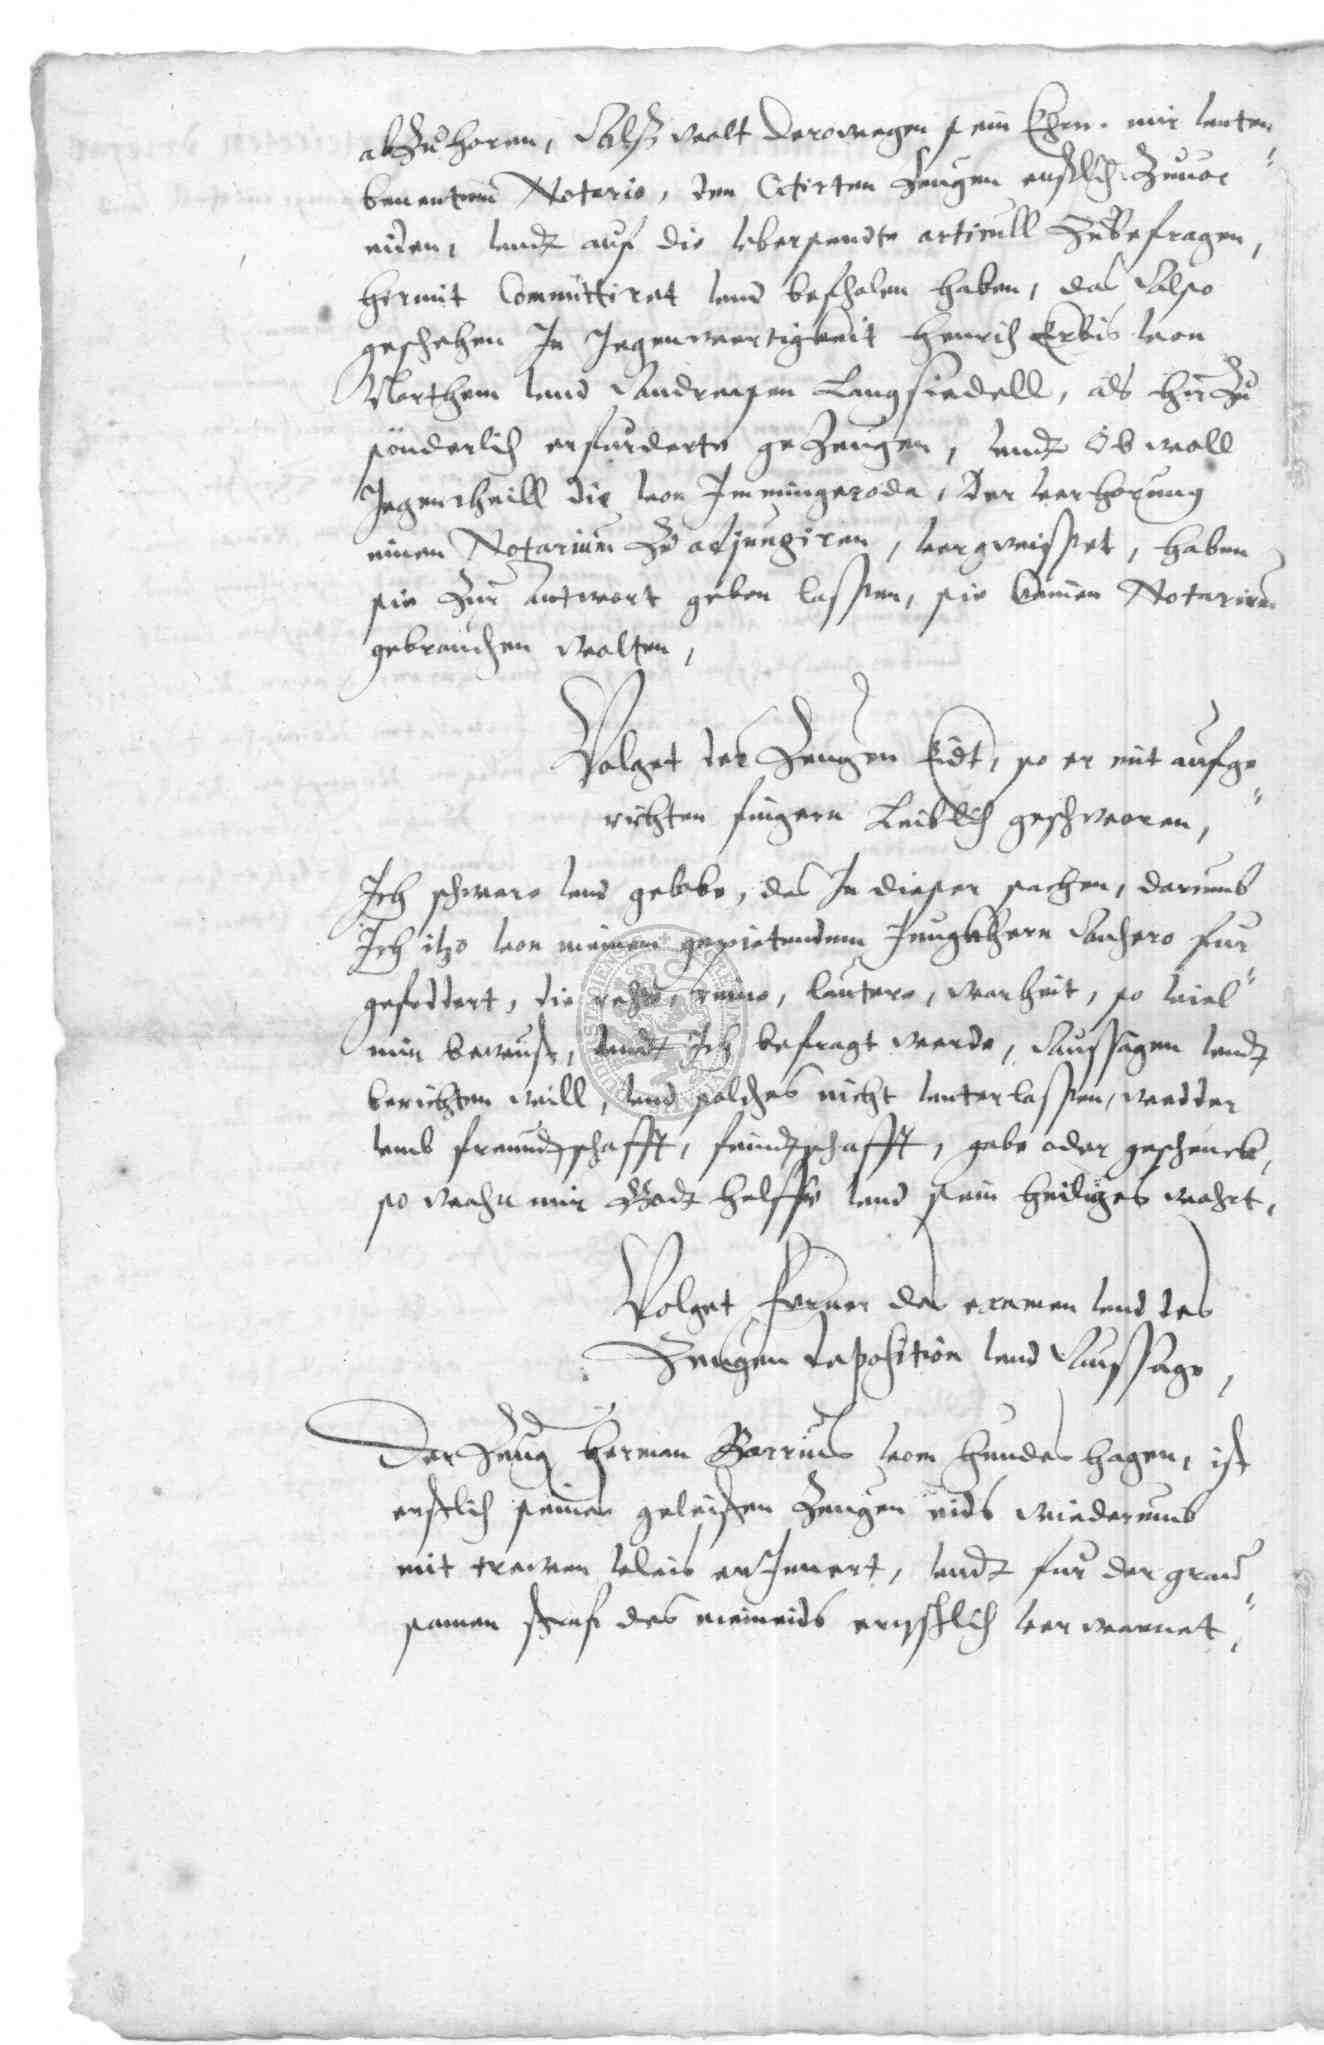 abzuhoren, Alß wolt derowegen sein Ehrn. mir unten
benentem Notario, den Citirten Zeugen erstlich Zuuor
eiden, undt auf die ubersendte articull Zubefragen,
hirmit Committiret und befholen haben, das Also
geschehen In Jegenwertigkeit Henrich Erbis von
Northem und Andreasen Langsiedell, als hirzu
sonderlich erfurderte geZeugen, undt Ob woll
Jegentheill die von Immingeroda, Der verhorung
einen Notarium Zu adjungiren, vergweißet, haben
sie Zur antwort geben lassen, sie keinen Notarium
gebrauchen wolten,
Volget der Zeugen Eidt, so er mit aufge
richten fingern Leiblich geschworen,
Ich schwere und gelobe, das In dieser sachen, darumb
Ich itzo von meinem gepietendem Jungkhern Anhero fur
gefoddert, die rechte, reine, lautere, warheit, so viel
mir bewust, undt Ich befragt werde, Aussagen undt
berichten will, und solches nicht unterlassen, wedder
umb freundtschafft, feindtschafft, gabe oder geschenck,
so wahr mir Gott helffe und sein heiliges wohrt,
Volget ferner das examen und des
Zeugen deposition und Aussage,
Der Zeug Herman Borrius vom Hundes hagen, ist
erstlich seines geleisten Zeugen eids wiederumb
mit trewen vleis erInnert, undt fur der grau
samen straf des meineids ernstlich verwarnet,